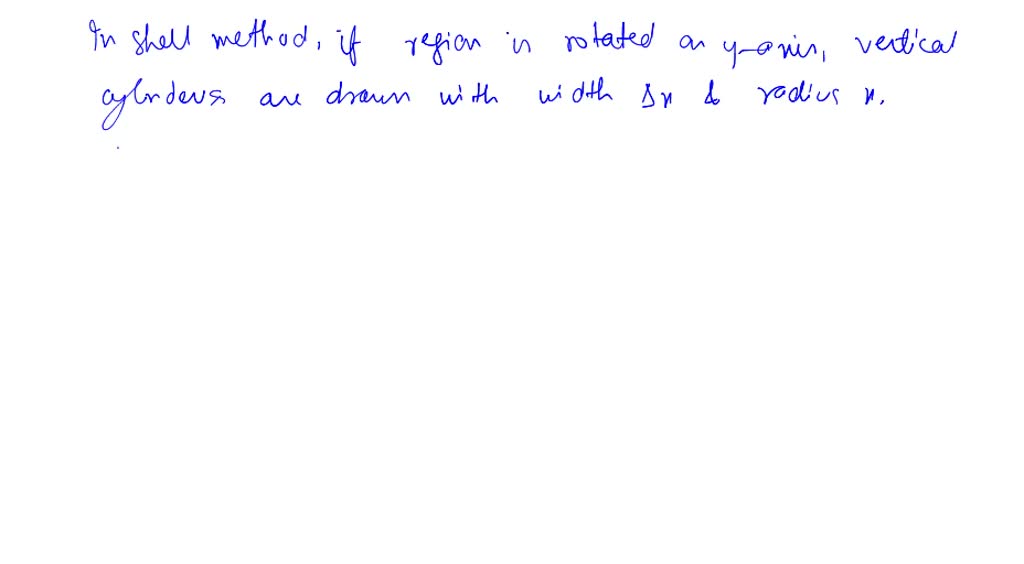 In shell method, if region is rotated on y-axis, vertical
cylinders are drawn with width Δx & radius x.